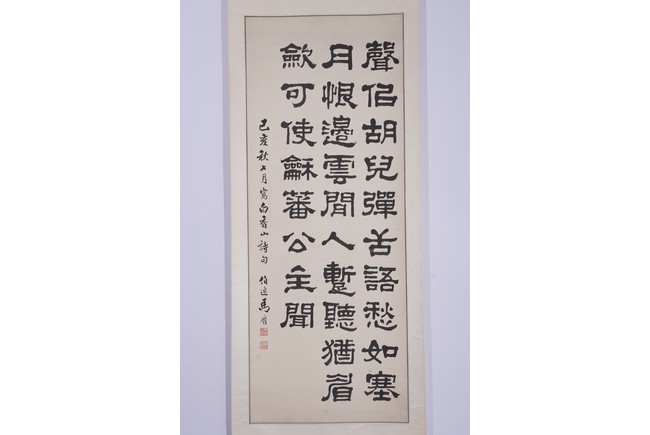 聲佀胡兒彈舌語愁如塞
月恨邊雲閒人蹔聽猶眉
歛可使龢蕃公主聞
己亥秋七月寫白香山詩句 伯逸馬晉